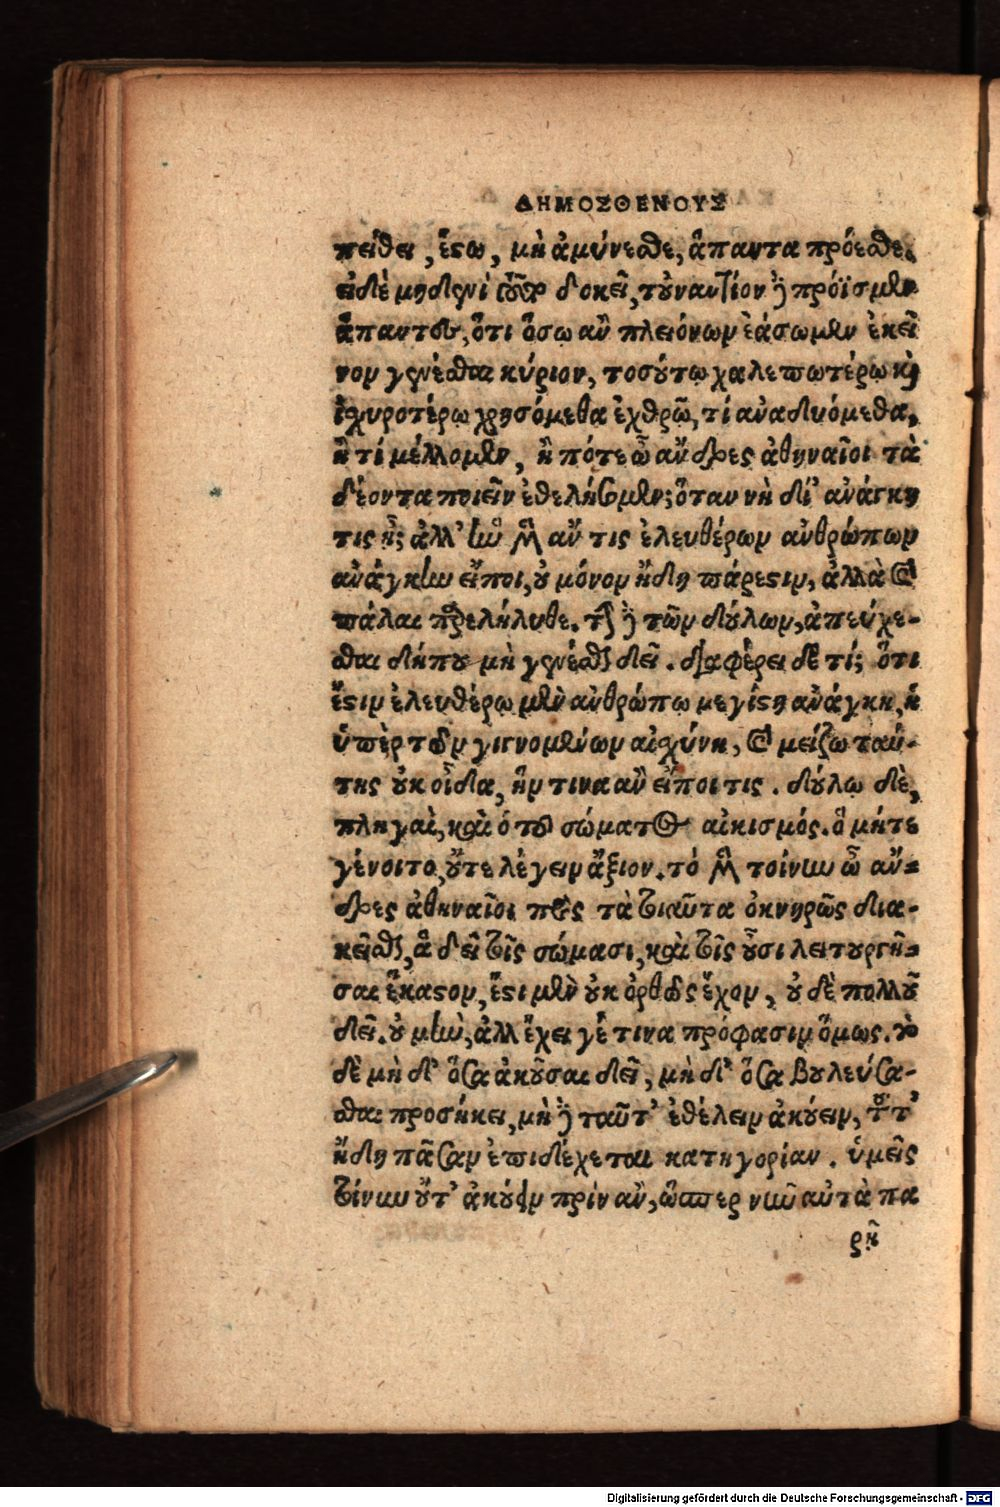 ΔΗΜΟΣΘΕΝΟΥΣ
πείθει, ἔστω, μὴ ἀμύνεσθε, ἅπαντα πρόεσθε.
εἰ δὲ μηδενὶ τοῦτο δοκεῖ, τοὐναντίον δὲ πρόϊσμεν
ἅπαντες, ὅτι ὅσῳ ἂν πλειόνων ἐάσωμεν ἐκεῖ
νον γενέσθαι κύριον, τοσούτῳ χαλεπωτέρῳ καὶ
ἰσχυροτέρῳ χρησόμεθα ἐχθρῷ, τί ἀναδυόμεθα,
ἢ τί μέλλομεν, ἢ πότε ὦ ἄνδρες ἀθηναῖοι τὰ
δέοντα ποιεῖν ἐθελήσομεν; ὅταν νὴ δί' ἀνάγκη
τις ᾖ; ἀλλ' ἣν μὲν ἄν τις ἐλευθέρων ἀνθρώπων
ἀνάγκην εἴποι, οὐ μόνον ἤδη πάρεστιν, ἀλλὰ καὶ
πάλαι παρελήλυθε. τὴν δὲ τῶν δούλων, ἀπεύχε-
σθαι δήπου μὴ γενέσθαι δεῖ. διαφέρει δὲ τί; ὅτι
ἔστιν ἐλευθέρῳ μὲν ἀνθρώπῳ μεγίστη ἀνάγκη, ἡ
ὑπὲρ τῶν γιγνομένων αἰσχύνη, καὶ μείζω ταύ-
της οὐκ οἶδα, ἥν τινα ἂν εἴποι τις. δούλῳ δὲ,
πληγαὶ, καὶ ὁ τοῦ σώματος αἰκισμός. ὃ μήτε
γένοιτο, οὔτε λέγειν ἄξιον. τὸ μὲν τοίνυν ὦ ἄν-
δρες ἀθηναῖοι πρὸς τὰ τοιαῦτα ὀκνηρῶς δια-
κεῖσθαι, ἃ δεῖ τοῖς σώμασι, καὶ ταῖς οὐσί λειτουργῆ-
σαι ἕκαστον, ἔστι μὲν οὐκ ὀρθῶς ἔχον, οὐδὲ πολλοῦ
δεῖ. οὐ μὴν, ἀλλ' ἔχει γέ τινα πρόφασιν ὅμως. τὸ
δὲ μὴ δ' ὅσα ἀκοῦσαι δεῖ, μὴ δ' ὅσα βουλεύσα-
σθαι προσήκει, μὴ δὲ ταῦτ' ἐθέλειν ἀκούειν, τοῦτ'
ἤδη πᾶσαν ἐπιδέχεται κατηγορίαν. ὑμεῖς
τοίνυν οὔτ' ἀκούειν πρὶν ἂν, ὥσπερ νῦν αὐτὰ πα
ρῇ
Digitalisierung gefördert durch die Deutsche Forschungsgemeinschaft - DFG